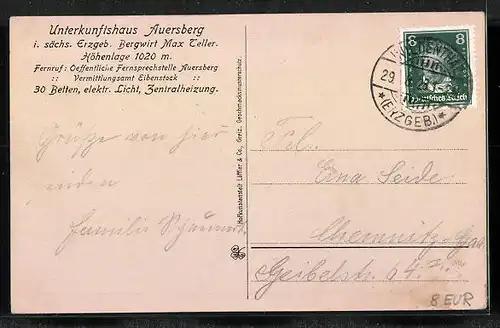 Unterkunftshaus Auersberg
i. sächs. Erzgeb. Bergwirt Max Teller.
Höhenlage 1020 m.
Fernruf: Oeffentliche Fernsprechstelle Auersberg
:: Vermittlungsamt Eibenstock ::
30 Betten, elektr. Licht, Zentralheizung.
Grüße von hier
senden
Familie
Hofkunstanstalt Löffler & Co., Greiz. Geschmacksmusterschutz.
8 8
Deutsches Reich
29
* (ERZGEB.) *
Frl.
Erna Seide
Chemnitz
Geibelstr. 64
8 EUR